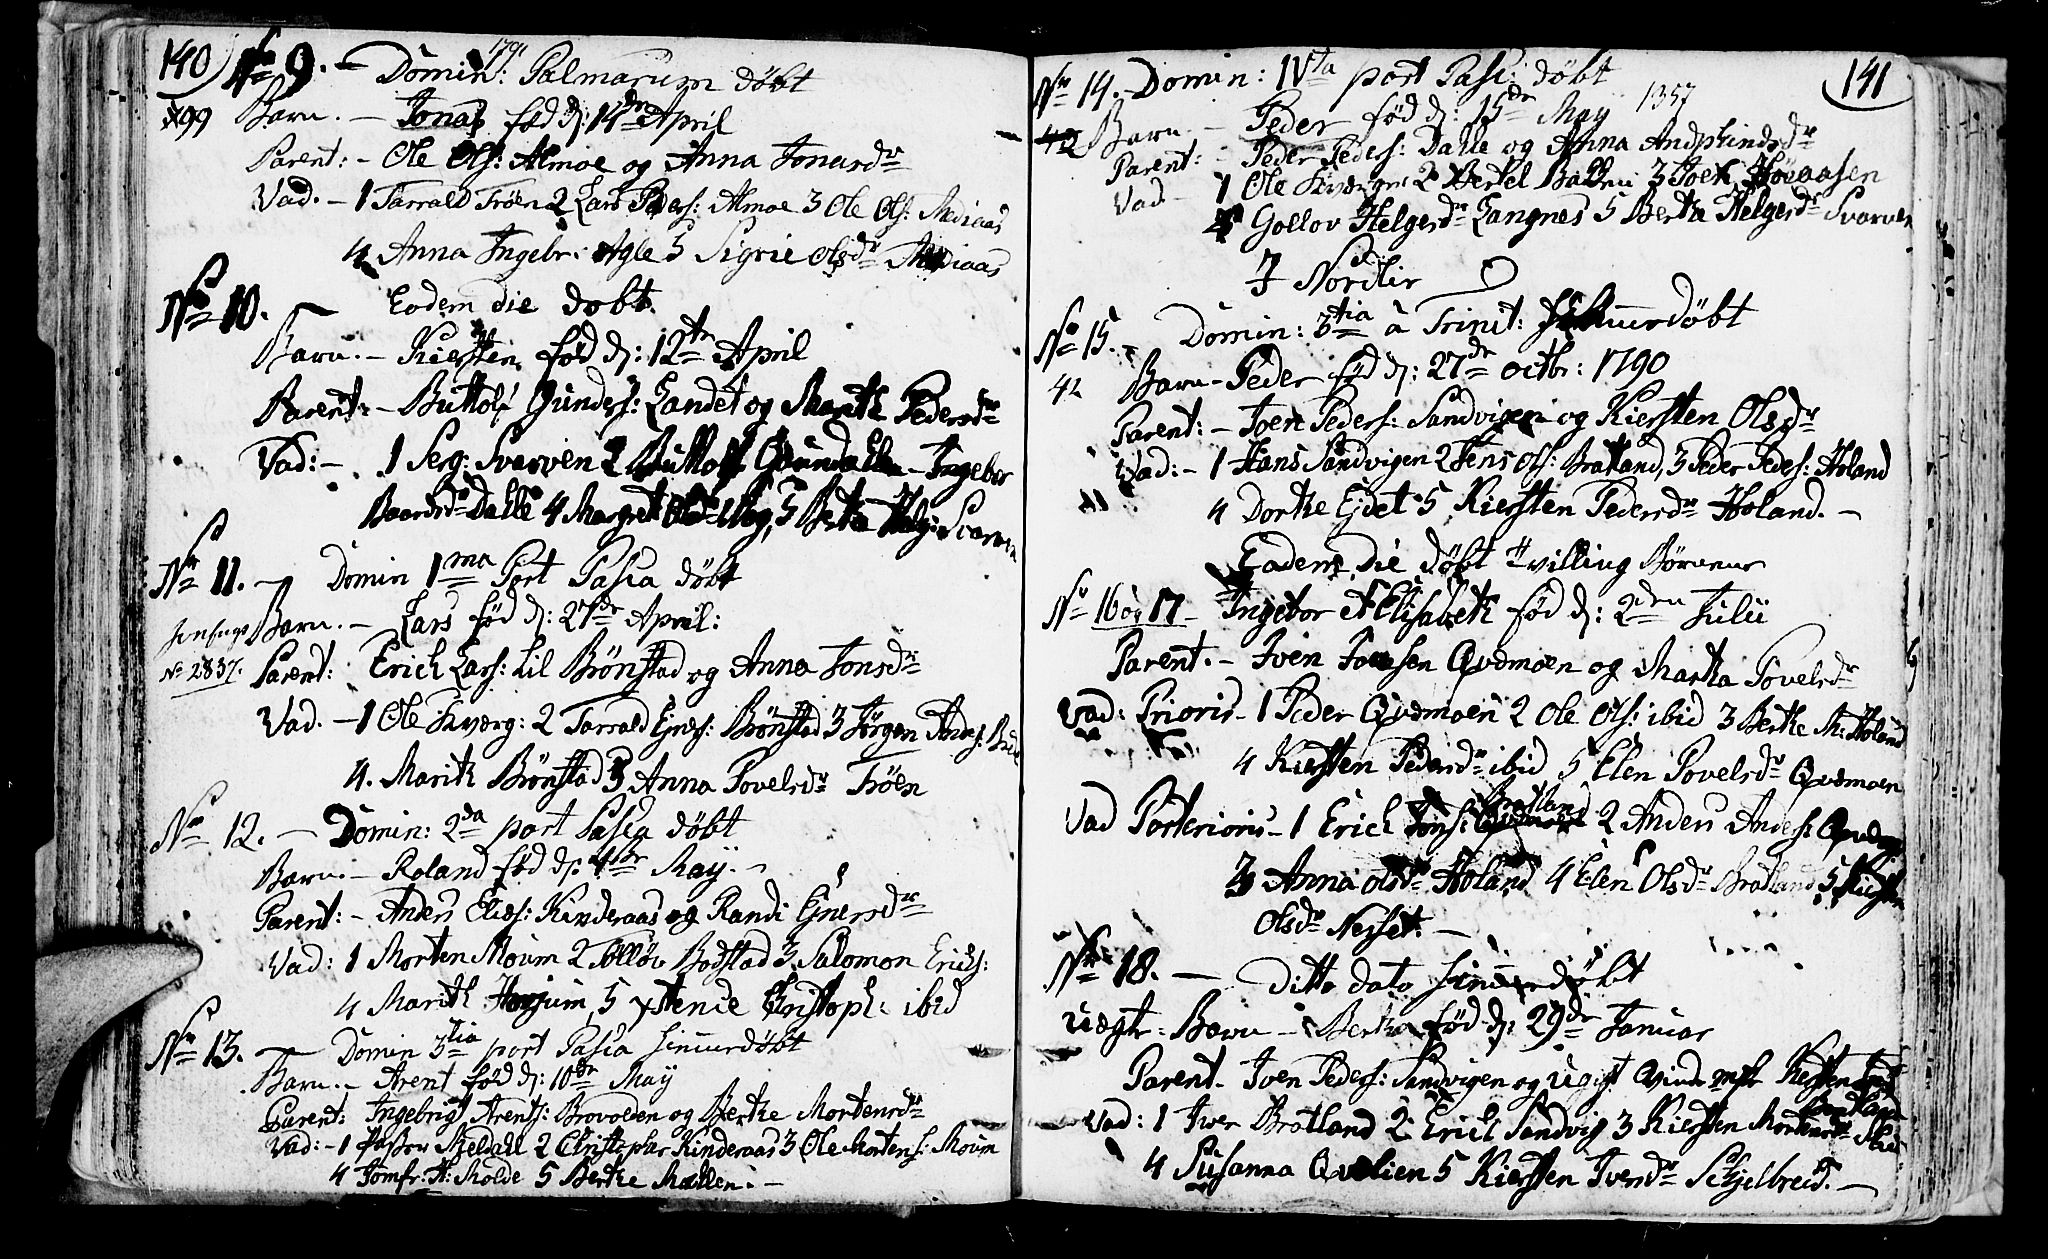 140
1791
No 9. - Domin: Palmarum døbt
99 Barn. - Jonas fød d: 14de April
Parent: - Ole Ols: Almoe og Anna Jonasdr
Vad. - 1 Tarrald Trøen 2 Lars Peders: Almoe 3 Ole Ols: Mediaas
4 Anna Ingebr: Agle 5 Sigrie Olsdr Mediaas
No 10. Eodem die døbt
Barn. - Kiersten fød d: 12te April
Parent: - Buttolf Gunders: Landet og Marith Pedersdr
Vad: - 1 Serg: Svarven 2 Buttolf - Ingebor
Baardsdr Dalle 4 Margret 5 Berta Helg: Svarven
No 11. - Domin 1ma Post Pasca døbt
Barn. - Lars fød d: 27de April:
No 2837.
Parent: Erich Lars: Lil Brønstad og Anna Jonsdr
Vad. - 1 Ole Kværg: 2 Tarrald Ejners: Brønstad 3 Jørgen Anders:
4. Marith Brønstad 5 Anna Povelsdr Trøen
No 12. - Domin: 2da post Pasca døbt
Barn. - Roland fød d: 4de May. -
Parent: - Anders Elias: Kinderaas og Randi Ejnersdr
Vad: 1 Morten Moum 2 Tølløv Bodstad 3 Salomon Erichs:
4 Marith Horjum, 5 Xstence Christoph: ibid
No 13. Domin 3tia post Pasca hiemmedøbt
Barn. - Arent fød d: 10de May
Parent: Ingebrigt Arents: Brovolden og Berthe Mortensdr
Vad: - 1 Pastor Bieldall 2 Christopher Kinderaas 3 Ole Mortens: Moum
4 Jomfr: H: Molde 5 Berthe Møllen. -
141
No 14. - Domin: IVta post Pasc: døbt
1357
42 Barn - Peder fød d: 15de May
Parent: - Peder Peders: Dalle og Anna
Vad - 1 Ole Kværgn: 2 Bertel 3 Joen Høeaasen
4 Gollov Helgersdr Langnes 5 Bertha Helgersdr Svarven
I Nordlie
No 15. - Domin: 3tia a Trinit: hiemmedøbt
42 Barn - Peder fød d: 27de octbr: 1790
Parent: - Joen Peders: Sandvigen og Kiersten Olsdr
Vad: - 1 Hans Sandvigen 2 Jens Ols: Bratland, 3 Peder Peders: Holand
4 Dorthe Ejdet 5 Kiersten Pedersdr Holand. -
Eadem Die døbt tvilling Børnene
No 16 og 17 - Ingebor & Elisabeth fød d: 2den Julii
Parent. - Iven Qvdmoen og Martha Povelsdr
Vad: Prioris - 1 Peder Qvdmoen 2 Ole Ols: ibid 3 Berthe M: Holand
4 Kiersten Pedersdr ibid 5 Elen Povelsdr Qvdmoen
Vad Posterioris - 1 Erich Jons: Bratland 2 Anders Anders:
3 Anna Olsdr Holand 4 Elen Olsdr Bratland 5 Kiersten
Olsdr Nesset. -
No 18. - Ditto dato hiemmedøbt
uægte - Barn - Bertha fød d: 29de Januar
Parent - Iven Peders: Sandvigen og ugift Qvinde Kiersten
Vad: 1 Iver Bratland 2 Erich Sandvig 3 Kiersten Mortensdr
4 Susanna Qvelien 5 Kiersten Iversdr Schjelbreid. -